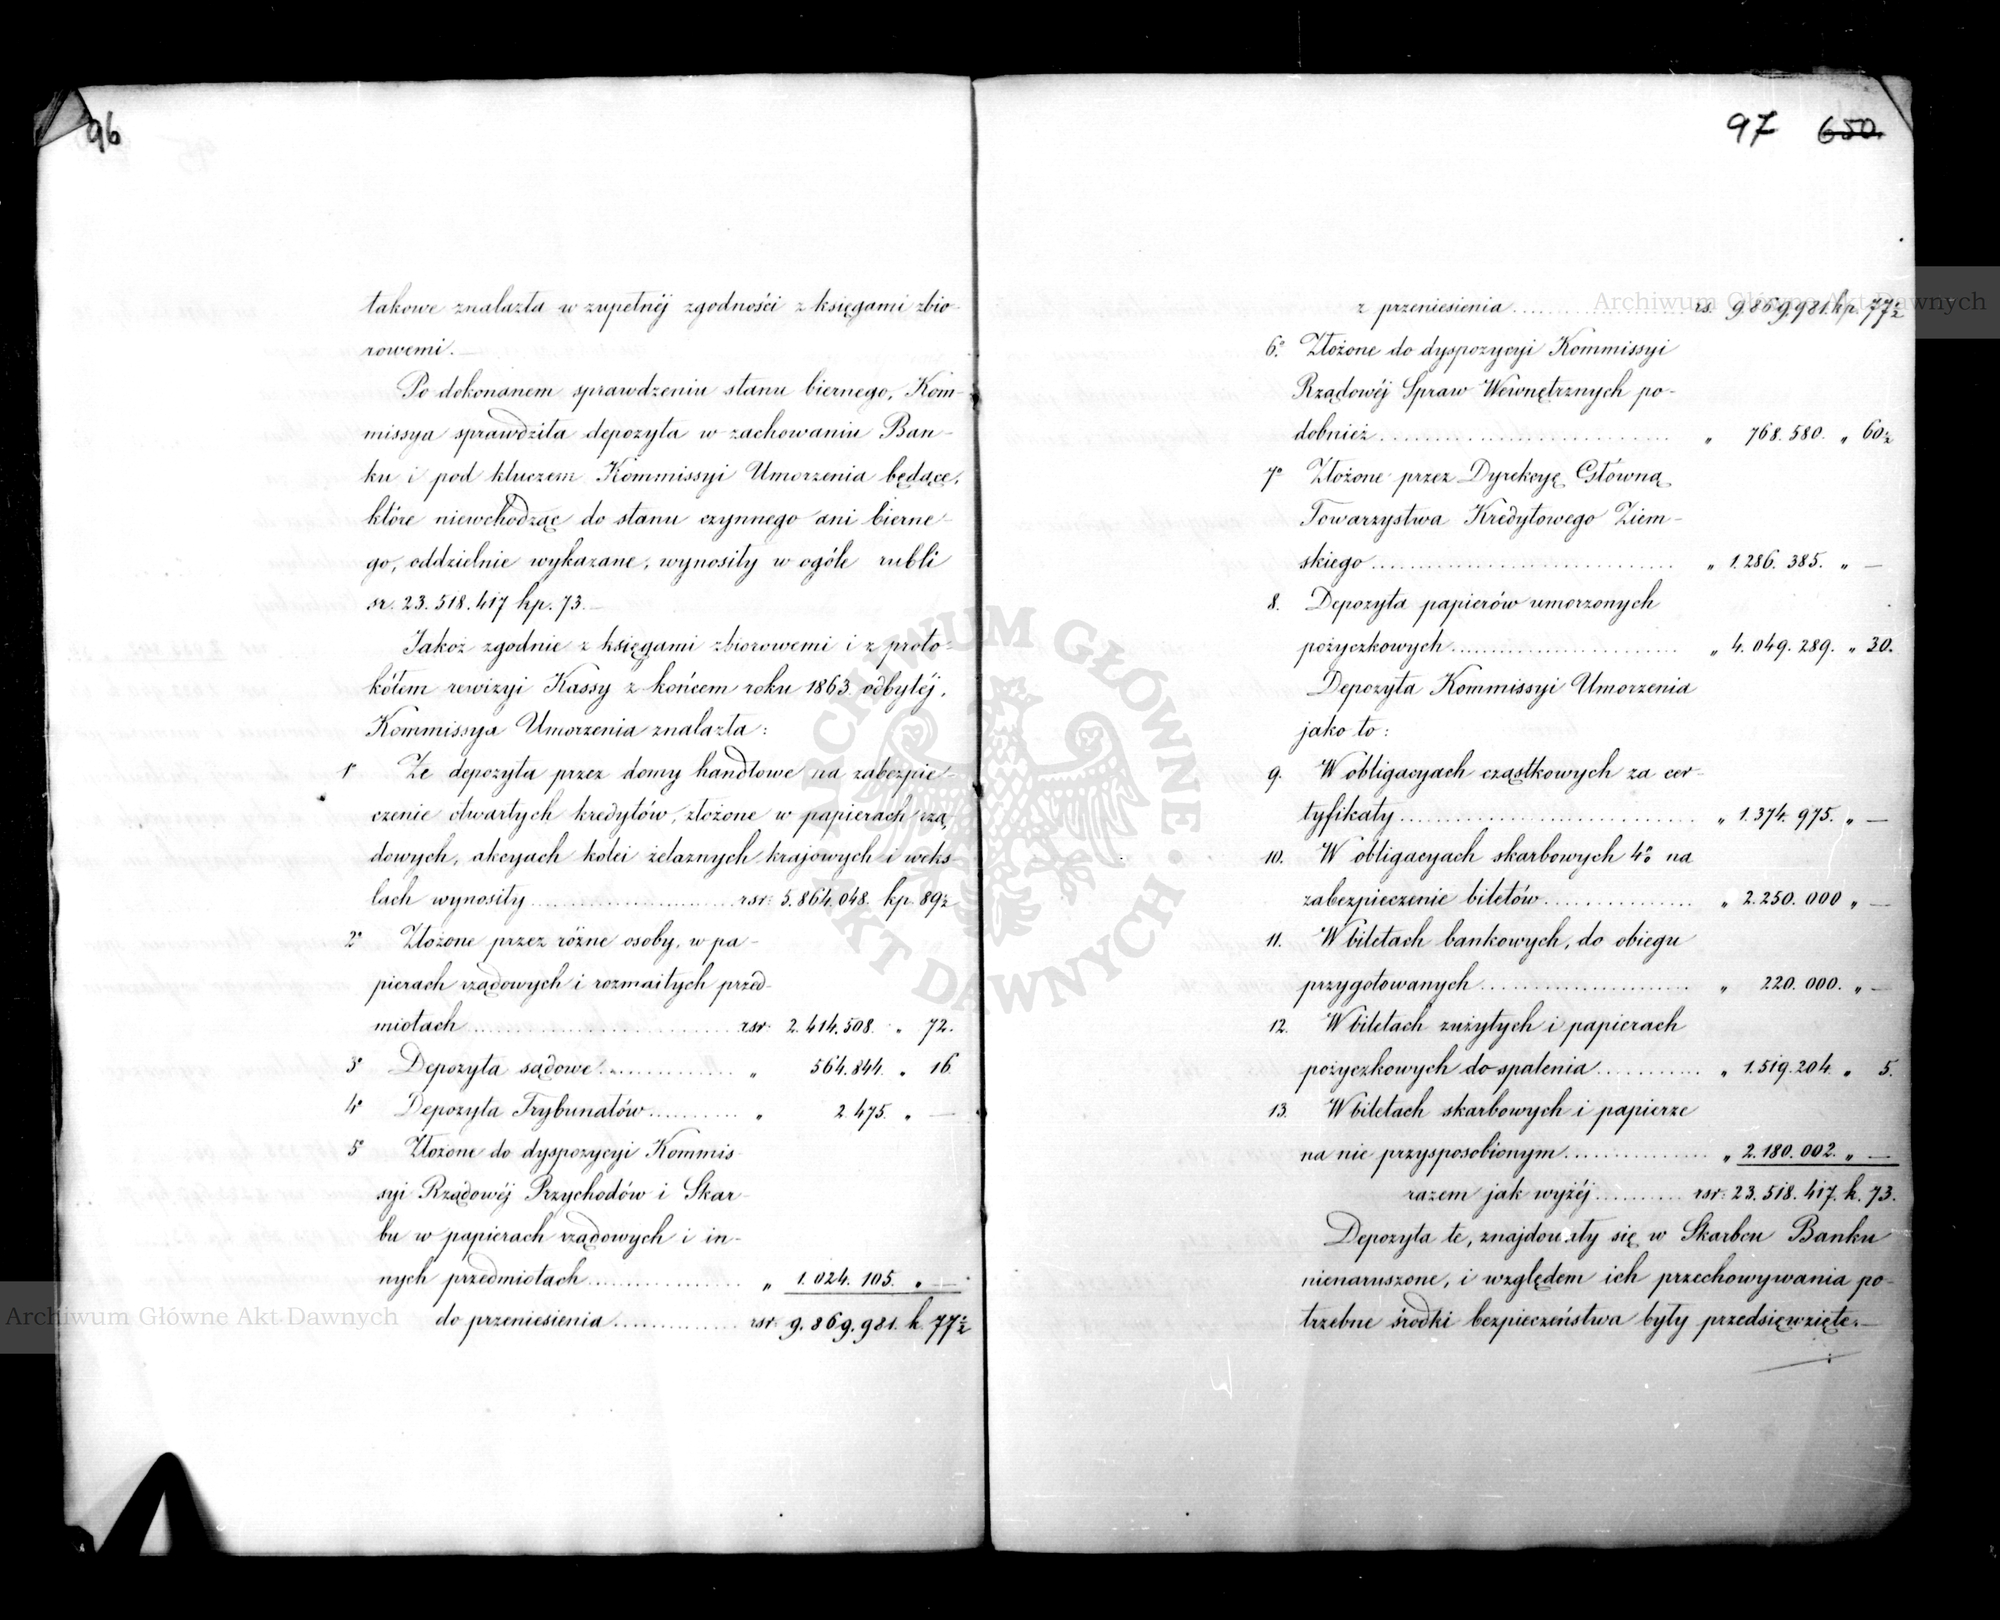 96
takowe znalazła w zupełnéj zgodności z księgami zbio-
rowemi.
Po dokonanem sprawdzeniu stanu biernego, Kom-
missya sprawdziła depozyta w zachowaniu Ban-
ku i pod kluczem Kommissyi Umorzenia będące,
które niewchodząc do stanu czynnego ani bierne-
go, oddzielnie wykazane, wynosiły w ogóle rubli
sr. 23.518.417 kp. 73.—
Jakoż zgodnie z księgami zbiorowemi i z proto-
kółem rewizyi Kassy z końcem roku 1863 odbytéj,
Kommissya Umorzenia znalazła:
1° Że depozyta przez domy handlowe na zabezpie-
czenie otwartych kredytów, złożone w papierach rzą-
dowych, akcyach kolei żelaznych krajowych i weks-
lach wynosiły .......... rsr: 5.864.048. kp 89½
2° Złożone przez różne osoby, w pa-
pierach rządowych i rozmaitych przed-
miotach .......... rsr 2.414.508. „ 72.
3° Depozyta sądowe .......... „ 564.844. „ 16
4° Depozyta Trybunałów .......... „ 2 475. „ —
5° Złożone do dyspozycyi Kommis-
syi Rządowéj Przychodów i Skar-
bu w papierach rządowych i in-
nych przedmiotach .......... „ 1.024.105. „ —
do przeniesienia .......... rsr: 9.869.981. k 77½
97 650.
z przeniesienia .......... rs. 9.869.981. kp. 77½
6° Złożone do dyspozycyi Kommissyi
Rządowéj Spraw Wewnętrznych po-
dobnież .......... „ 768.580. „ 60½
7° Złożone przez Dyrekcyę Główną
Towarzystwa Kredytowego Ziem-
skiego .......... „ 1.286.385. „ —
8. Depozyta papierów umorzonych
pożyczkowych .......... „ 4.049.289. „ 30.
Depozyta Kommissyi Umorzenia
jako to:
9. W obligacyach cząstkowych za cer-
tyfikaty .......... „ 1.374.975. „ —
10. W obligacyach skarbowych 4% na
zabezpieczenie biletów .......... „ 2.250.000 „ —
11. W biletach bankowych, do obiegu
przygotowanych .......... „ 220.000. „ —
12. W biletach zużytych i papierach
pożyczkowych do spalenia .......... „ 1.519.204. „ 5.
13. W biletach skarbowych i papierze
na nie przysposobionym .......... „ 2.180.002. „ —
razem jak wyżéj .......... rsr: 23.518.417. k. 73.
Depozyta te, znajdowały się w Skarbcu Banku
nienaruszone, i względem ich przechowywania po-
trzebne środki bezpieczeństwa były przedsięwzięte.—
Archiwum Główne Akt Dawnych
Archiwum Główne Akt Dawnych
ARCHIWUM GŁÓWNE AKT DAWNYCH